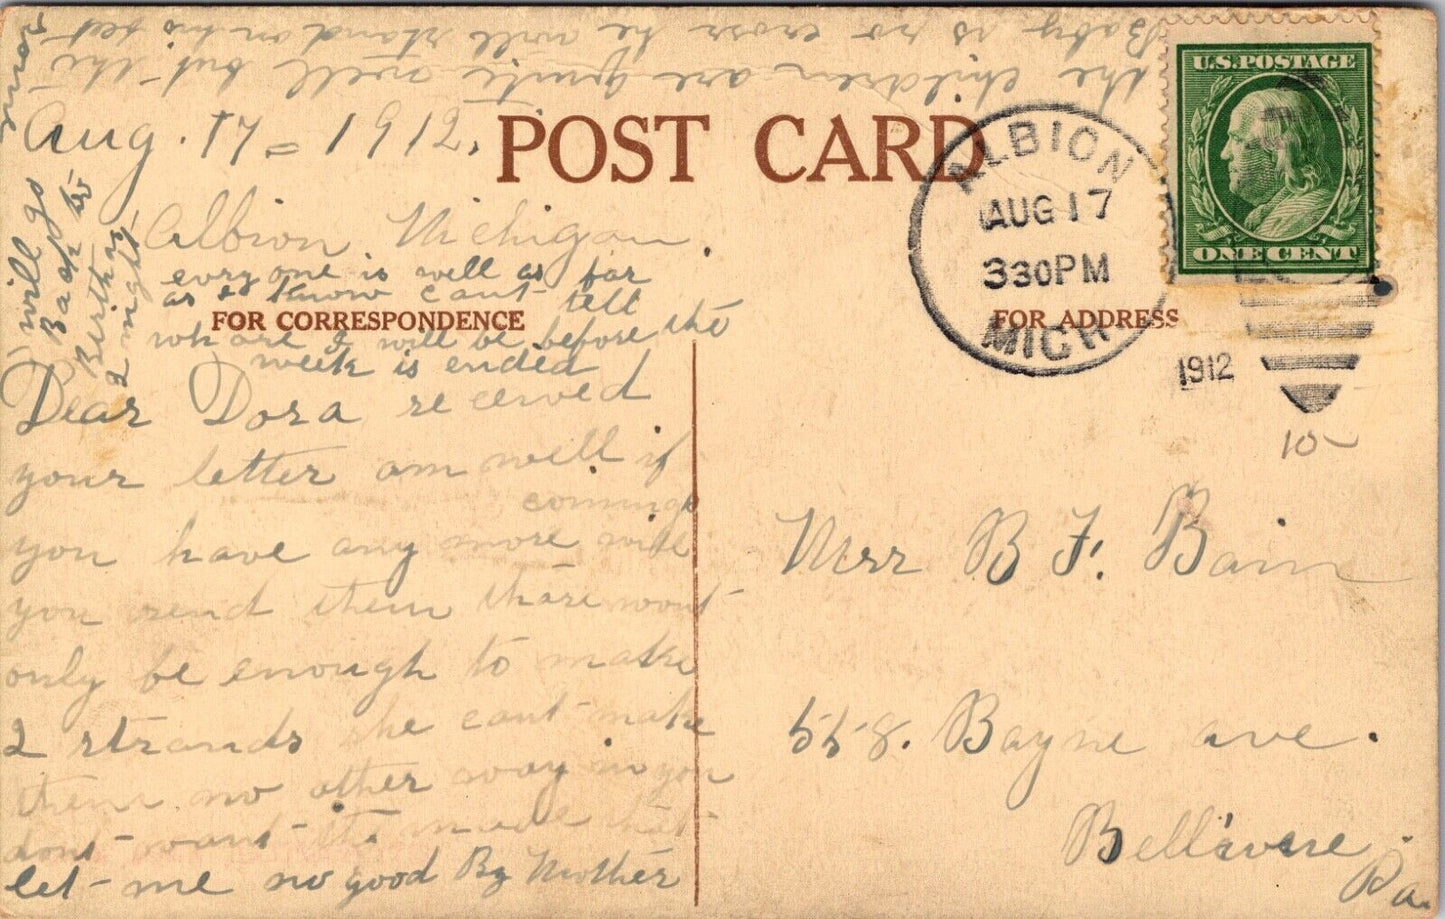 Baby is so cross he will stand on his feet
the children are quite well but the
Aug. 17 = 1912.
POST CARD
ALBION
AUG 17
330PM
MICH
1912
U.S. POSTAGE
ONE CENT
Albion Michigan.
everyone is well as far
as I know cant tell
FOR CORRESPONDENCE
FOR ADDRESS
whare I will be before the
week is ended
will go
Back to
Berthas
2 night
Dear Dora received
your letter am well if
coming
you have any more will
you send them thare wont
only be enough to make
2 strands she cant make
them no other way so you
dont want the made that
let me no good By Mother
10
Mrr B F. Bain
558. Bayne ave.
Bellevue
Pa.